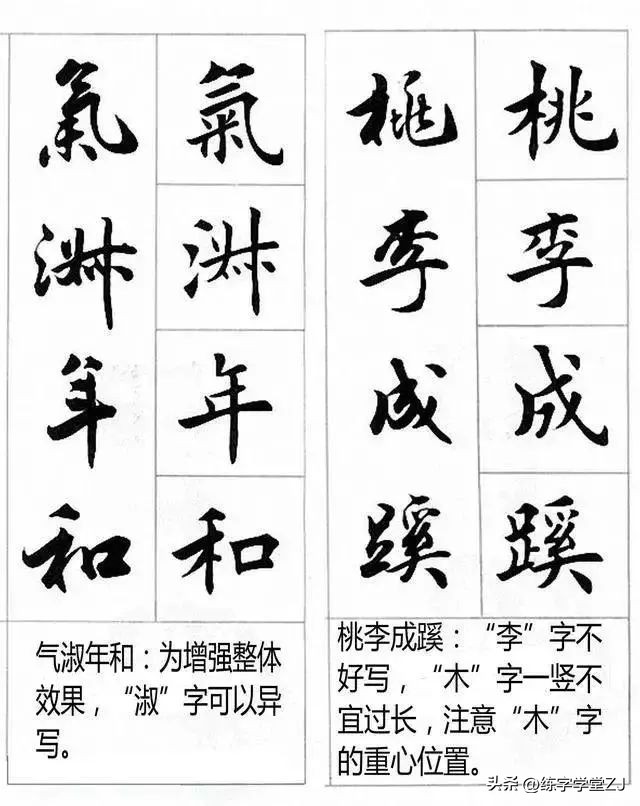 桃李成蹊
桃李成蹊
桃李成蹊：“李”字不
好写，“木”字一竖不
宜过长，注意“木”字
的重心位置。
氣淑年和
氣淑年和
气淑年和：为增强整体
效果，“淑”字可以异
写。
头条 @练字学堂ZJ